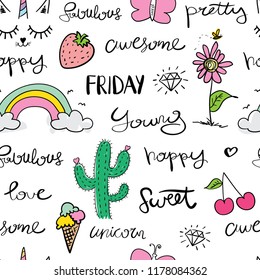 fabulous pretty
awesome
happy
FRIDAY
Young
fabulous happy
love
Sweet
some awe
unicorn
shutterstock.com · 1178084362